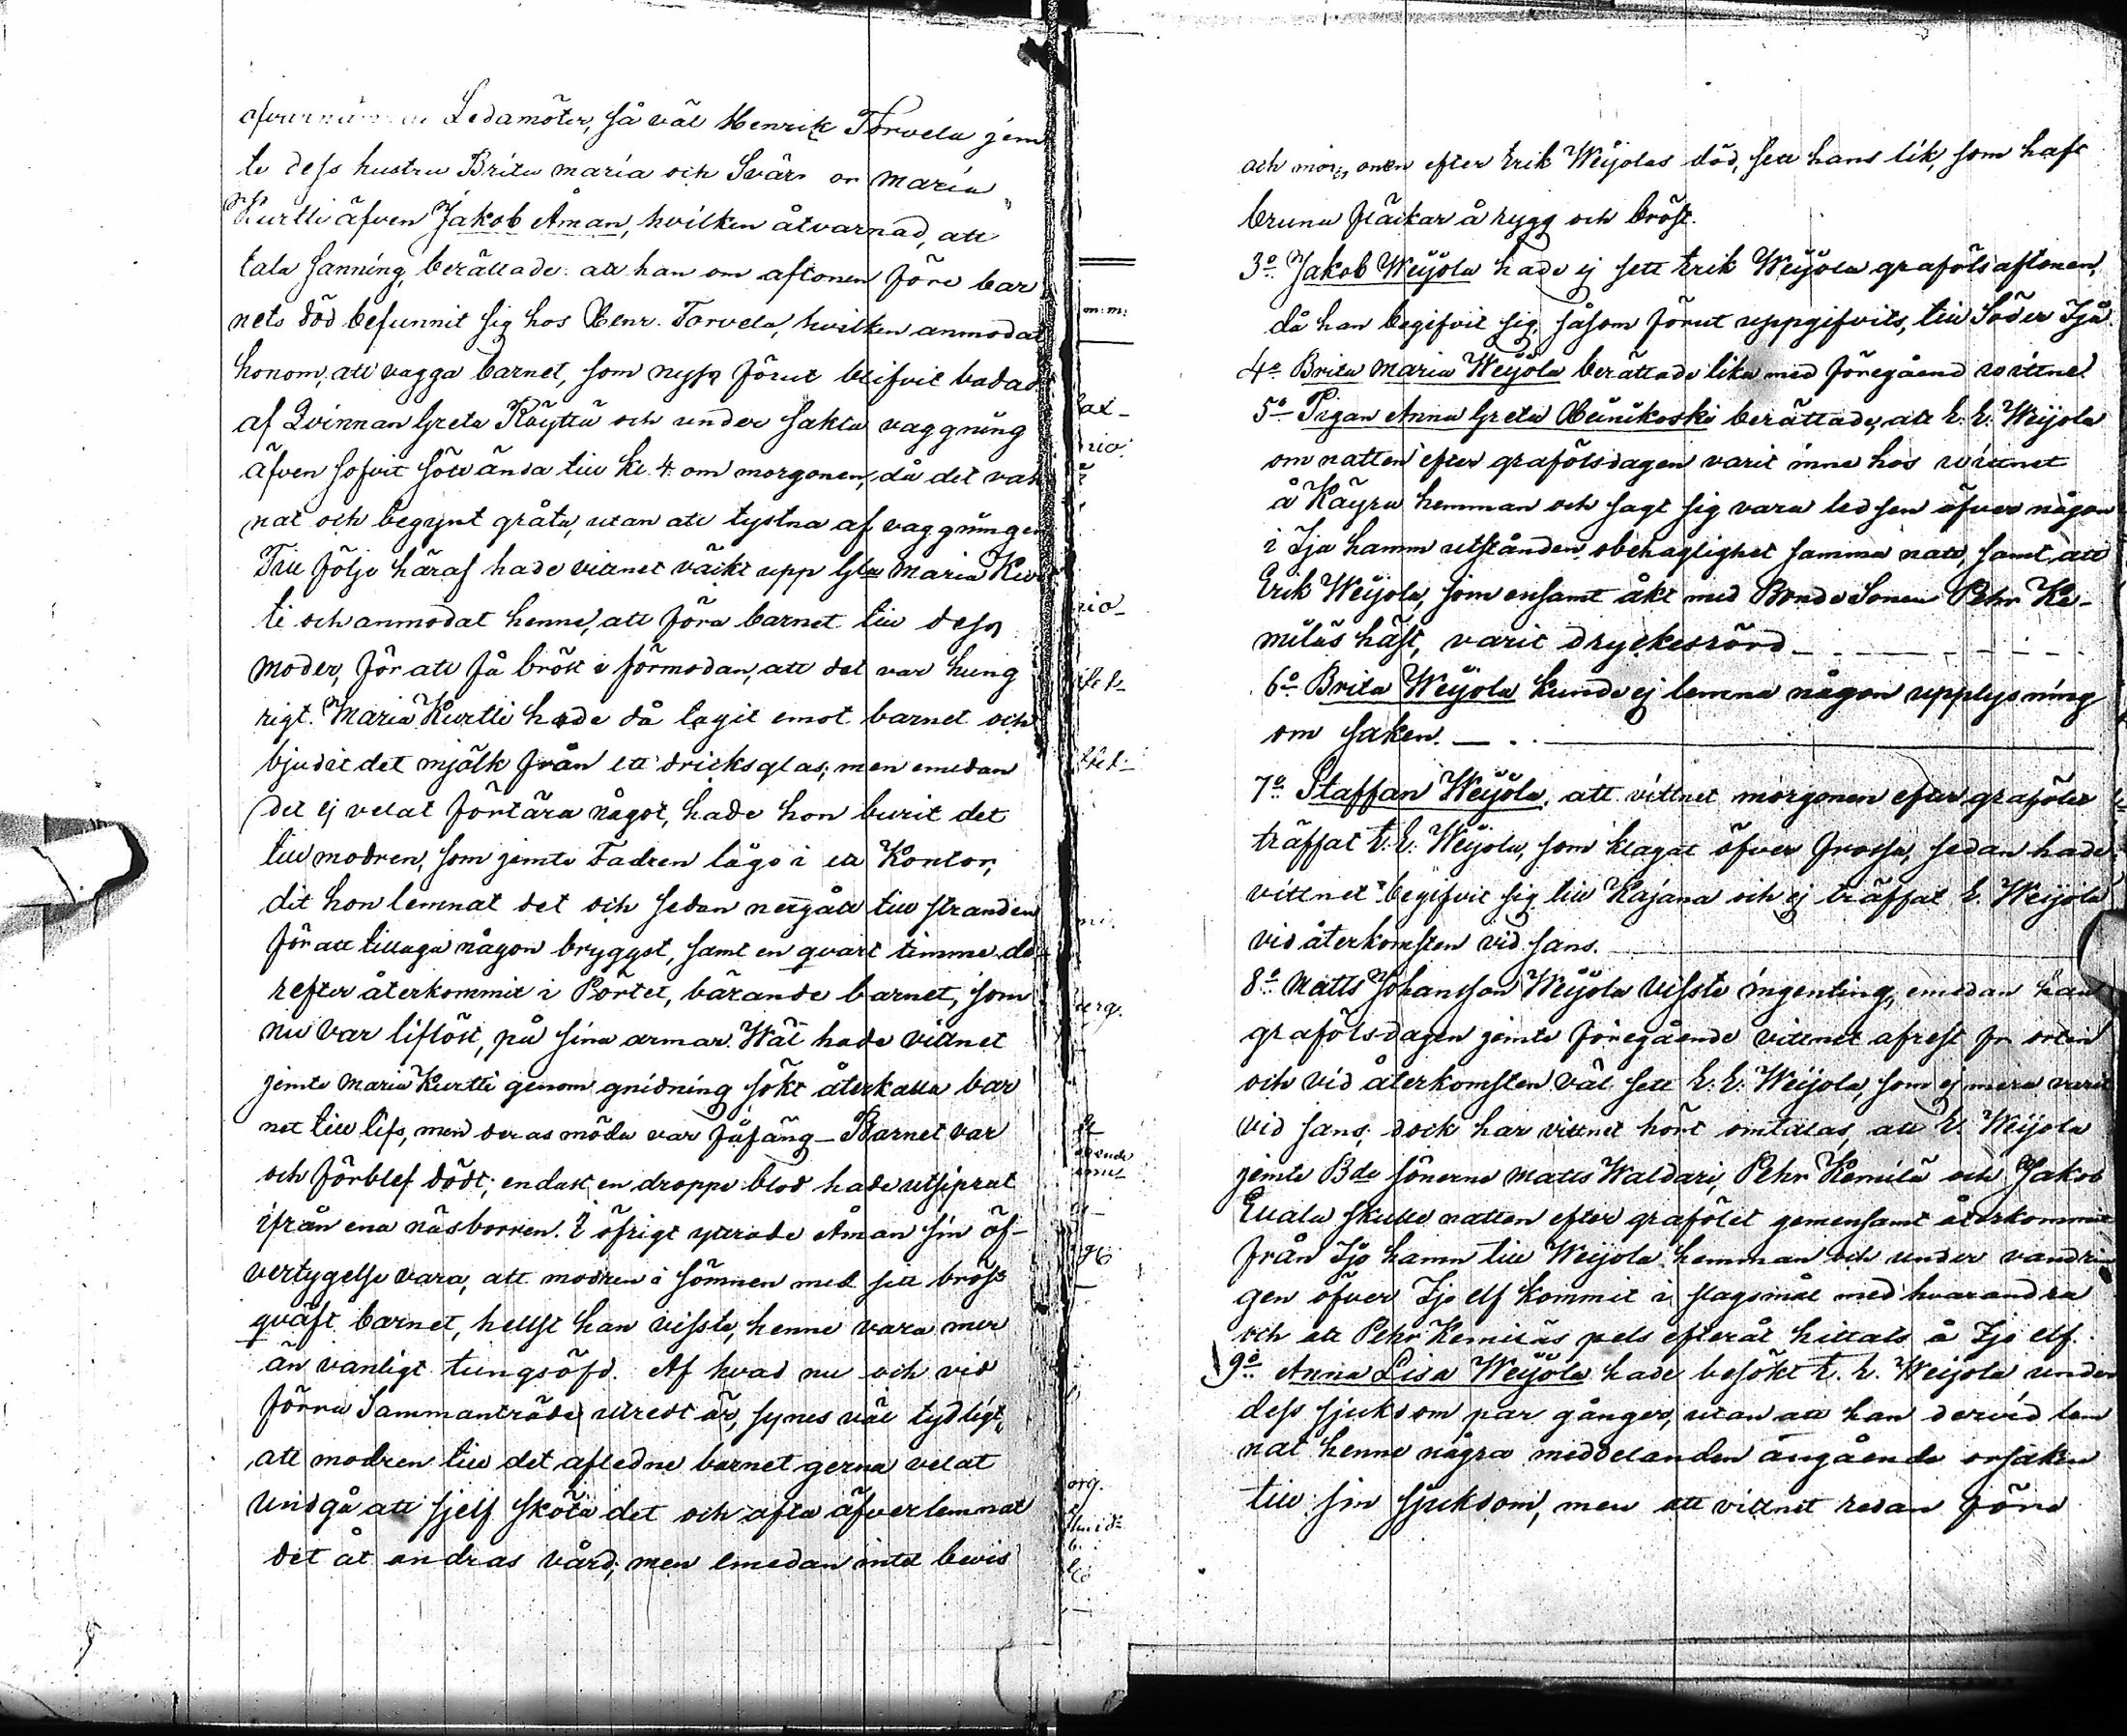 Ledamöter, så väl Henrik Torvela jem
te dess hustru Brita Maria och Svär  on Maria
Kurtti äfven Jakob Åman, hvilken åtvarnad, att
tala sanning, berättade: att han om aftonen före bar
nets död befunnit sig hos Henr. Torvela, hvilken anmodat
honom, att vagga barnet, som nyss förut blifvit badadt
af Qvinnan Greta Räyttä och under sakta vaggning
äfven sofvit sött ända till kl. 4. om morgonen, då det vak
nat och begynt gråta, utan att tystna af vaggningen
Till följe häraf hade vittnet väckt upp Gla Maria Kurt
ti och anmodat henne, att föra barnet till dess
moder, för att få bröst i förmodan, att det var hung
rigt. Maria Kurtti hade då tagit emot barnet och
bjudit det mjölk från ett dricksglas; men emedan
det ej velat förtära något, hade hon burit det
till modren, som jemte Fadren lågo i ett Kontor,
dit hon lemnat det och sedan nergått till stranden
för att tillaga någon bryggst, samt en qvart timme de
refter återkommit i Pörtet, bärande barnet, som
nu var liflöst, på sina armar. Wäl hade vittnet
jemte Maria Kurtti genom gnidning sökt återkalla bar
net till lifs, men deras möda var fåfäng – Barnet var
och förblef dödt; endast en droppe blod hade utsiprat
ifrån ena näsborren. I öfrigt yttrade Åman sin öf-
vertygelse vara, att modren i sömnen med sitt bröst
qväft barnet, helst han visste, henne vara mer
än vanligt tungsöfd. Af hvad nu och vid
förra Sammanträde utredt är, synes väl tydligt,
att modren till det aflednе barnet gerna velat
undgå att sjelf sköta det och ofta äfverlemnat
det åt andras vård; men emedan intet bevis
m:m:
och morg onen efter Erik Weijolas död, sett hans lik, som haft
bruna fläckar å rygg och bröst.
3o Jakob Weijola hade ej sett Erik Weijola grafölsaftonen,
då han begifvit sig, såsom förut uppgifvits, till Söder Ijå.
4o Brita Maria Weijola berättade lika med föregåend wittne.
5o Pigan Anna Greta Heinikoski berättade, att E. E. Weijola
om natten efter grafölsdagen varit inne hos wittnet
å Käyrä hemman och sagt sig vara ledsen öfver någon
i Ijo hamn utstånden obehaglighet samma natt, samt att
Erik Weijola, som ensamt åkt med BondeSonen Pehr Ke-
miläs häst, varit dryckesrörd
6o Brita Weijola kunde ej lemna någon upplysning
om saken.
7o Staffan Weijola, att vittnet morgonen efter grafölet
träffat E. E. Weijola, som klagat öfver frossa, sedan hade
vittnet begifvit sig till Kajana och ej träffat E. Weijola
vid återkomsten vid sans.
8o Matts Johansson Weijola visste ingenting, emedan han
grafölsdagen jemte föregående vittnet afrest fr orten
och vid återkomsten väl sett E. E. Weijola, som ej mera varit
vid sans; dock har vittnet hört omtalas, att E. Weijola
jemte Bde sönerne Matts Waldari, Pehr Kemilä och Jakob
Euala skulle natten efter grafölet gemensamt återkommit
från Ijo hamn till Weijola hemman och under vandrin
gen öfver Ijo elf kommit i slagsmål med hvarandra
och att Pehr Kemiläs pels efteråt hittats å Ijo elf.
9o Anna Lisa Weijola hade besökt E. E. Weijola under
dess sjukdom par gånger, utan att han dervid lem
nat henne några meddelanden angående orsaken
till sin sjukdom, men att vittnet redan före